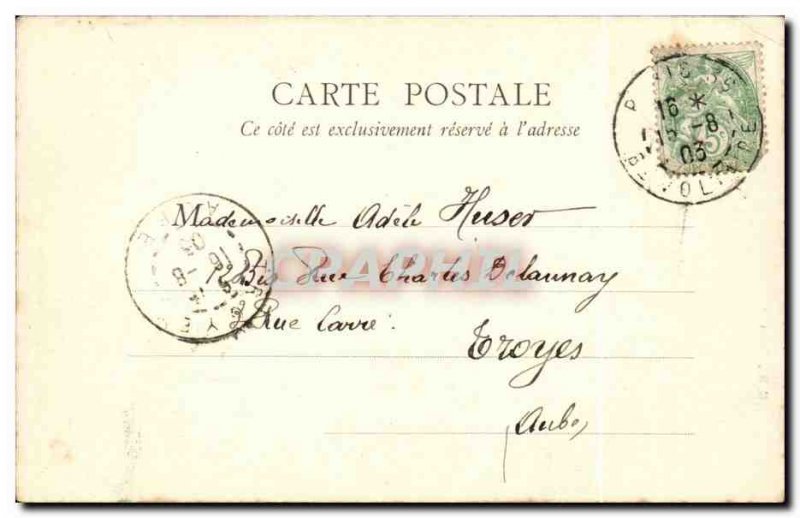 CARTE POSTALE
Ce côté est exclusivement réservé à l'adresse
PARIS
16 *
-8
03
Bd VOLTAIRE
Mademoiselle Adèle Huser
Bis Rue Charles Delaunay
Rue Carré
Troyes
Aube
CPAPHIL